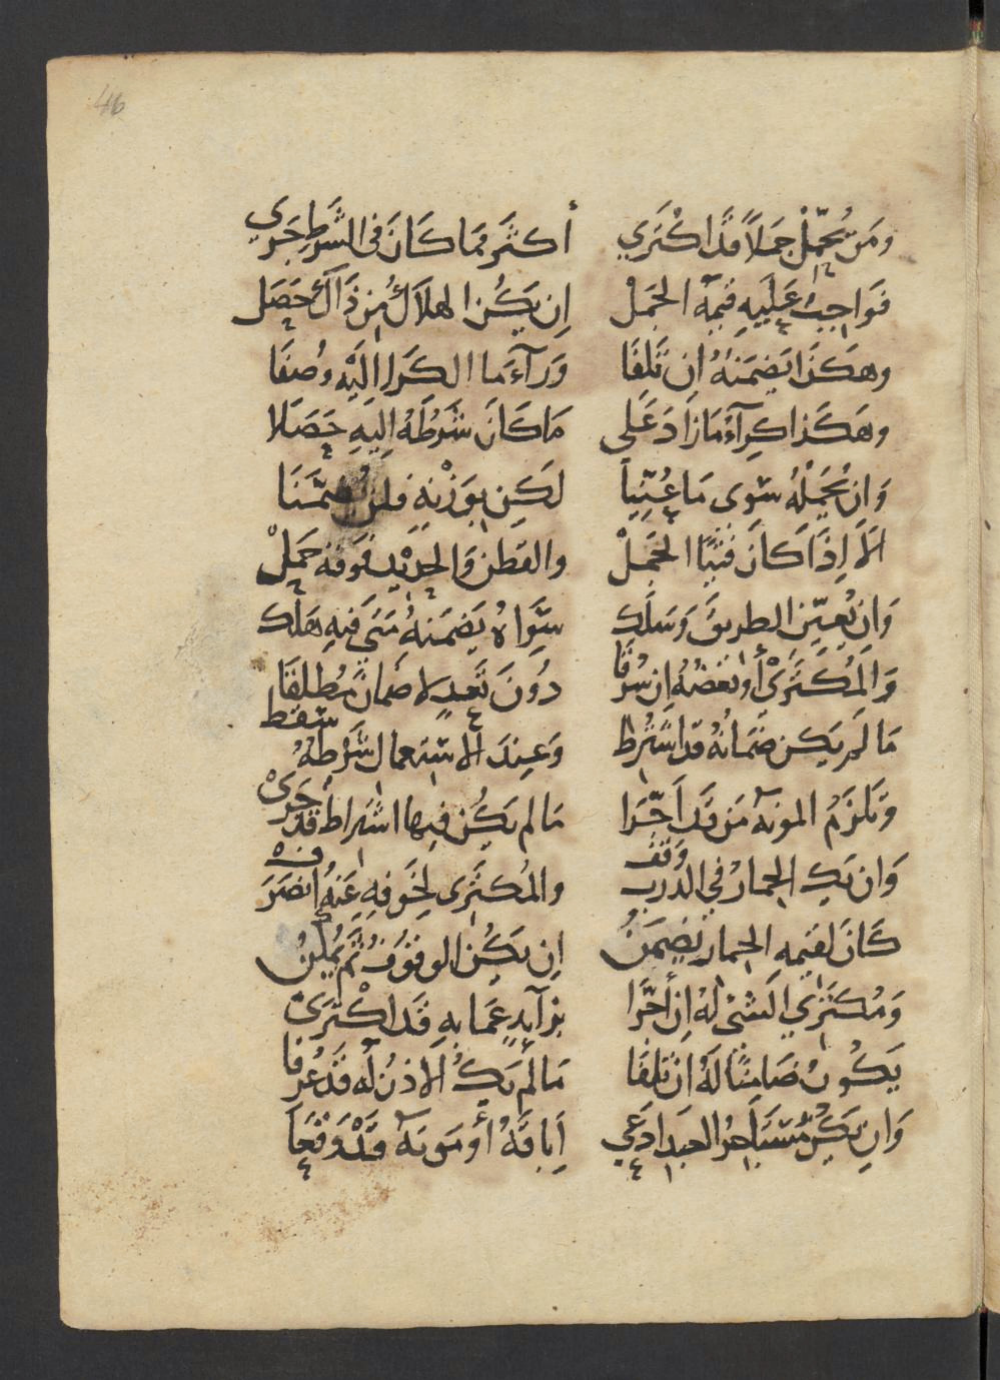 46
ومَن يُحَمِّلْ جَمَلاً قَد اكْتَرَي أكثَرَ مِمَا كَانَ في الشَرطِ جَرَي
فوَاجِبٌ عَلَيهِ قيمَة الجَمَلْ اِن يَكُن الهلاَكُ مِن ذَاكَ حَصَل
وهَكَذَا يَضمَنهُ ان تَلَفَا وَرَآءَ مَا الكَرَا اِلَيْهِ وُصفَا
وهَكَذا كِرآءَ مَا زَادَ عَلَى مَا كَانَ شَرطُهُ اِلَيهِ حَصَلا
وَان يُحَمِّلْهُ سَوى مَا عُيِّنا لَكِن بوَزْنهِ فلن يُضمَّنَا
اَلاَ اِذَا كَانَ قتبًا الجَمَلْ والقطن وَالحَديد فوقهُ حَمَلْ
وَان يُعيّنِ الطريقَ وَسَلَك سَوَاهُ يَضمَنهُ مَتَى فيهِ هَلَك
وَالمُكتَرَىْ أو بَعضُهُ اِن سُرقَا دُونَ تَعَدٍ لا ضمَانَ مُطلَقَا
مَا لَم يَكن ضمَانهُ قد اشتُرط وَعِندَ الاستعمال شَرْطهُ سَقَط
وَتَلزَمُ المونَة مَن قَد اَجّرَا مَا لم يَكُن فيها اشتراط قد جَرَىْ
وَان يَكِ الحِمَارُ في الدرب وَقف والمُكتَرى لِخَوفهِ عَنهُ انصَرَف
كَانَ لقيمه الحِمار يَضمَنُ اِن يَكُن الوقوُفُ ثَم يُمكِنُ
وَمُكتَرِي الشئ لهُ اِن أجّرَا بزآيدٍ عَمَا بهِ قَد اكْتَرَىْ
يَكُونُ ضَامِنًا لَهُ ان تلفَا مَا لَم يَكُ الاذنُ لهُ قَد عُرفَا
وَان يَكُن مُستَاجرُ العَبد ادَعي اِبَاقَهُ أو مَوتَهُ قَد وَقَعَا